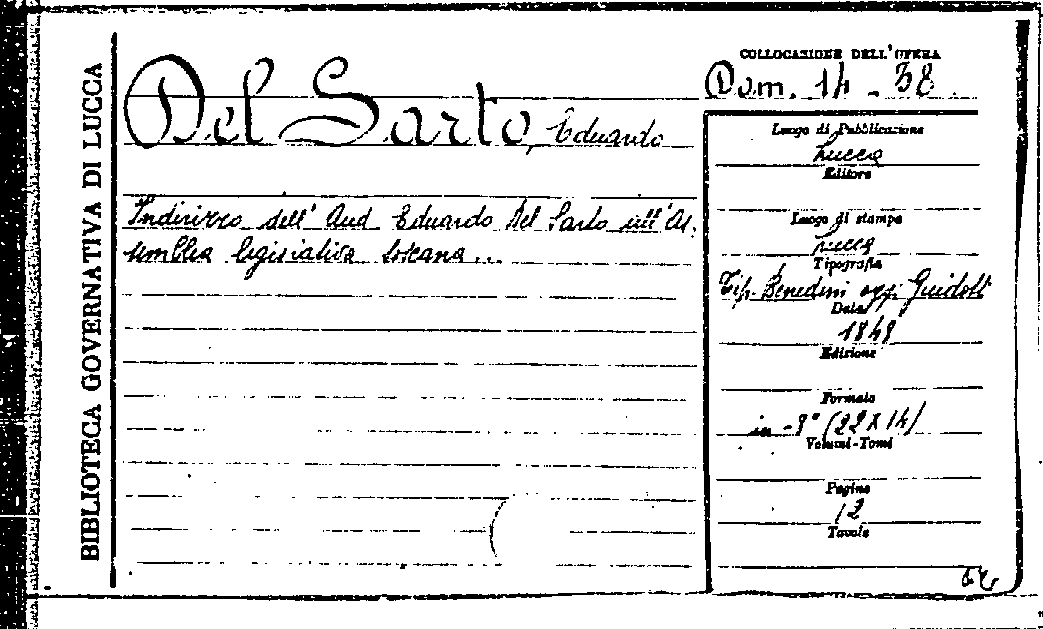 BIBLIOTECA GOVERNATIVA DI LUCCA
Del Sarto, Eduardo
Indirizzo dell' Aud Eduardo Del Sarto all' As.
semblea legislativa toscana...
COLLOCAZIONE DELL'OPERA
Dom. 14 - 38
Luogo di Pubblicazione
Lucca
Editore
Luogo di stampa
Lucca
Tipografia
Tip. Benedini oggi Guidotti
Data
1848
Edizione
Formato
in-8° (22 X 14)
Volumi-Tomi
Pagine
12
Tavole